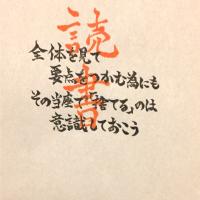 読書
全体を見て
要点をつかむ為にも
その当座で「捨てる」のは
意識しておこう